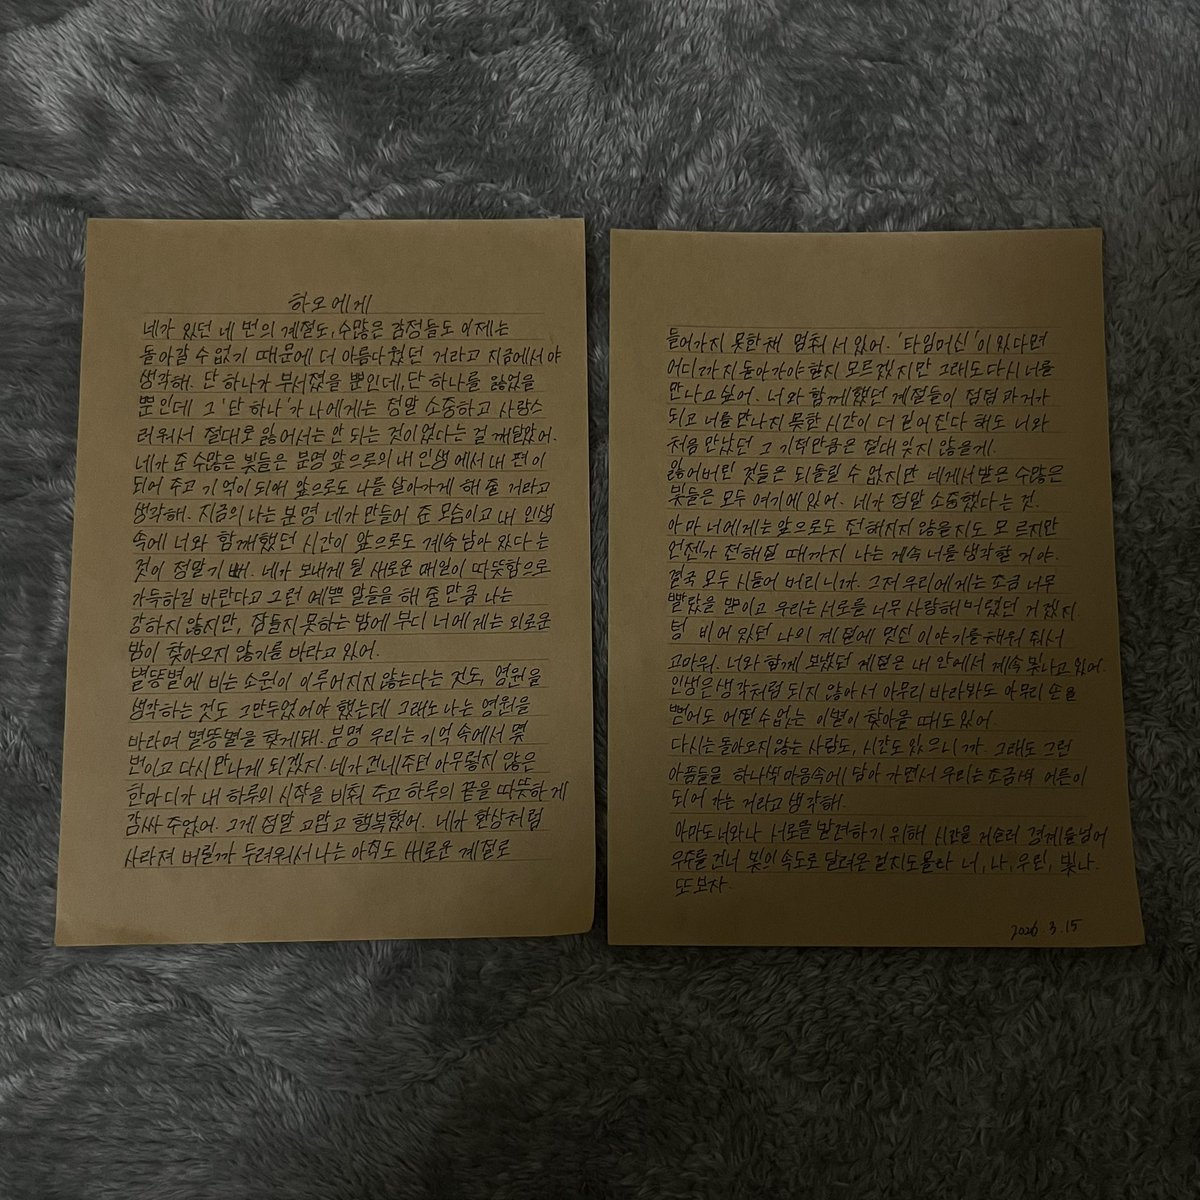 하오에게
네가 있던 네 번의 계절도, 수많은 감정들도 이제는
돌아갈 수 없기 때문에 더 아름다웠던 거라고 지금에서야
생각해. 단 하나가 부서졌을 뿐인데, 단 하나를 잃었을
뿐인데 그 '단 하나'가 나에게는 정말 소중하고 사랑스
러워서 절대로 잃어서는 안 되는 것이었다는 걸 깨달았어.
네가 준 수많은 빛들은 분명 앞으로의 내 인생에서 내 편이
되어 주고 기억이 되어 앞으로도 나를 살아가게 해 줄 거라고
생각해. 지금의 나는 분명 네가 만들어 준 모습이고 내 인생
속에 너와 함께했던 시간이 앞으로도 계속 남아 있다는
것이 정말 기뻐. 네가 보내게 될 새로운 매일이 따뜻함으로
가득하길 바란다고 그런 예쁜 말들을 해 줄 만큼 나는
강하지 않지만, 잠들지 못하는 밤에 부디 너에게는 외로운
밤이 찾아오지 않기를 바라고 있어.
별똥별에 비는 소원이 이루어지지 않는다는 것도, 영원을
생각하는 것도 그만두었어야 했는데 그래도 나는 영원을
바라며 별똥별을 찾게돼. 분명 우리는 기억 속에서 몇
번이고 다시 만나게 되겠지. 네가 건네주던 아무렇지 않은
한마디가 내 하루의 시작을 비춰 주고 하루의 끝을 따뜻하게
감싸 주었어. 그게 정말 고맙고 행복했어. 네가 환상처럼
사라져 버릴까 두려워서 나는 아직도 새로운 계절로
들어가지 못한채 멈춰 서 있어. '타임머신'이 있다면
어디까지 돌아가야 할지 모르겠지만 그래도 다시 너를
만나고 싶어. 너와 함께했던 계절들이 점점 과거가
되고 너를 만나지 못한 시간이 더 길어진다 해도 너와
처음 만났던 그 기적만큼은 절대 잊지 않을게.
잃어버린 것들은 되돌릴 수 없지만 네게서 받은 수많은
빛들은 모두 여기에 있어. 네가 정말 소중했다는 것.
아마 너에게는 앞으로도 전해지지 않을지도 모르지만
언젠가 전해질 때까지 나는 계속 너를 생각할 거야.
결국 모두 시들어 버리니까. 그저 우리에게는 조금 너무
빨랐을 뿐이고 우리는 서로를 너무 사랑해 버렸던 거겠지
텅 비어 있던 나의 계절에 멋진 이야기를 채워 줘서
고마워. 너와 함께 보냈던 계절은 내 안에서 계속 빛나고 있어.
인생은 생각처럼 되지 않아서 아무리 바라봐도 아무리 손을
뻗어도 어쩔 수 없는 이별이 찾아올 때도 있어.
다시는 돌아오지 않는 사람도, 시간도 있으니까. 그래도 그런
아픔들을 하나씩 마음속에 담아 가면서 우리는 조금씩 어른이
되어 가는 거라고 생각해.
아마도 너와 나 서로를 발견하기 위해 시간을 거슬러 경계를 넘어
우주를 건너 빛의 속도로 달려온 걸지도 몰라 너, 나, 우린, 빛나.
또 보자.
2026.3.15